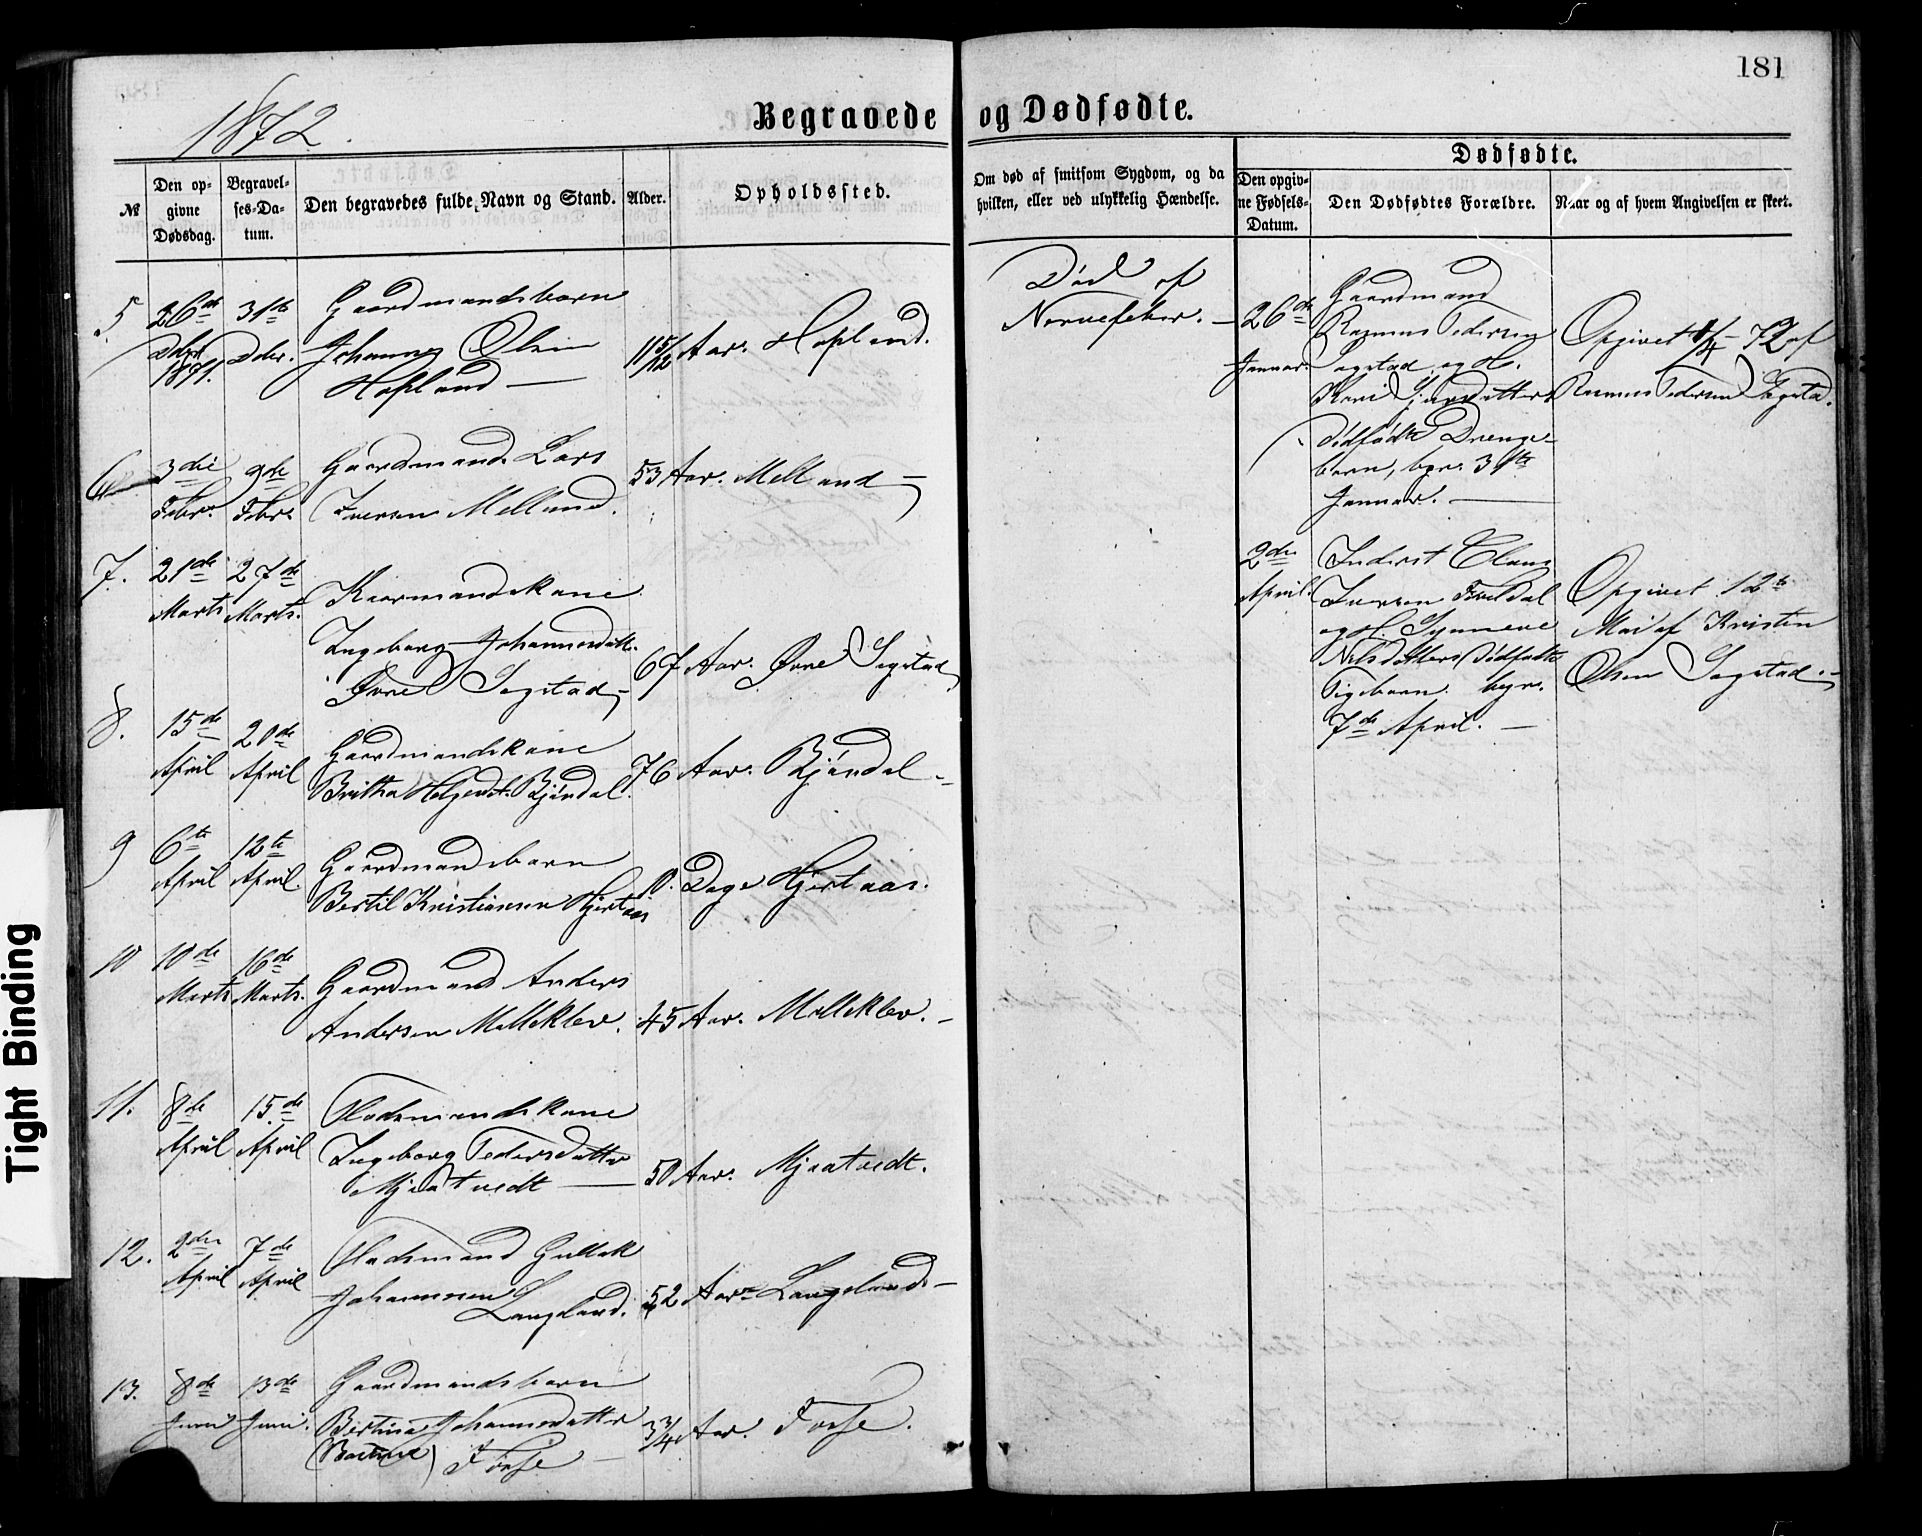 181
1872.
Begravede og Dødfødte.
№
Den op-
givne
Dødsdag.
Begravel-
ses-Da-
tum.
Den begravedes fulde Navn og Stand.
Alder.
Opholdssted.
Om død af smitsom Sygdom, og da
hvilken, eller ved ulykkelig Hændelse.
Dødfødte.
Den opgiv-
ne Fødsels-
Datum.
Den Dødfødtes Forældre.
Naar og af hvem Angivelsen er skeet.
5 26de 31te Gaardmandsbarn
1871. Dcbr. Johannes Olsen
Hopland
11 Aar. Hopland.
Død af
Nervefeber.
6 3die 9de Gaardmand Lars 53 Aar. Melland
Febr. Febr. Iversen Melland.
7. 21de 27de Kaarmandskone
Marts Marts.
Ingeborg Johannesdatt.
Øvre Sagstad 67 Aar. Øvre Sagstad
8. 15de 20de Gaardmandskone
April April Britha Helgesd. Bjørndal. 76 Aar. Bjørndal
9 6te 12te Gaardmandsbarn
April April. Bertil Kristiansen Hjertaas
Dage Hjertaas.
10 10de 16de Gaardmand Anders
Marts Marts.
Andersen Melleklev. 45 Aar. Melleklev.
11. 8de 15de Pladsmandskone
April April Ingeborg Pedersdatter
Mjaatvedt 50 Aar. Mjaatvedt.
12. 2den 7de Pladsmand Gullak
April April
Johannesen
Langeland. 52 Aar Langeland
13. 8de 13de Gaardmandsbarn
Juni Juni. Bertina Johannesdatter
Fosse
3 3/4 Aar. Fosse.
26de
Januar.
Gaardmand
Rasmus Pedersen
Sagstad og H.
Kari
dødfødte Drenge-
barn, bgr. 31te
Januar.
Opgivet 1/4 - 72 af
Rasmus Pedersen Sagstad.
2den
April.
Inderst Claus
Iversen
og H. Synneve
Nilsdatters dødfødte
Pigebarn. begr.
7de April.
Opgivet 12te
Mai af Kristen
Olsen Sagstad.
Tight Binding